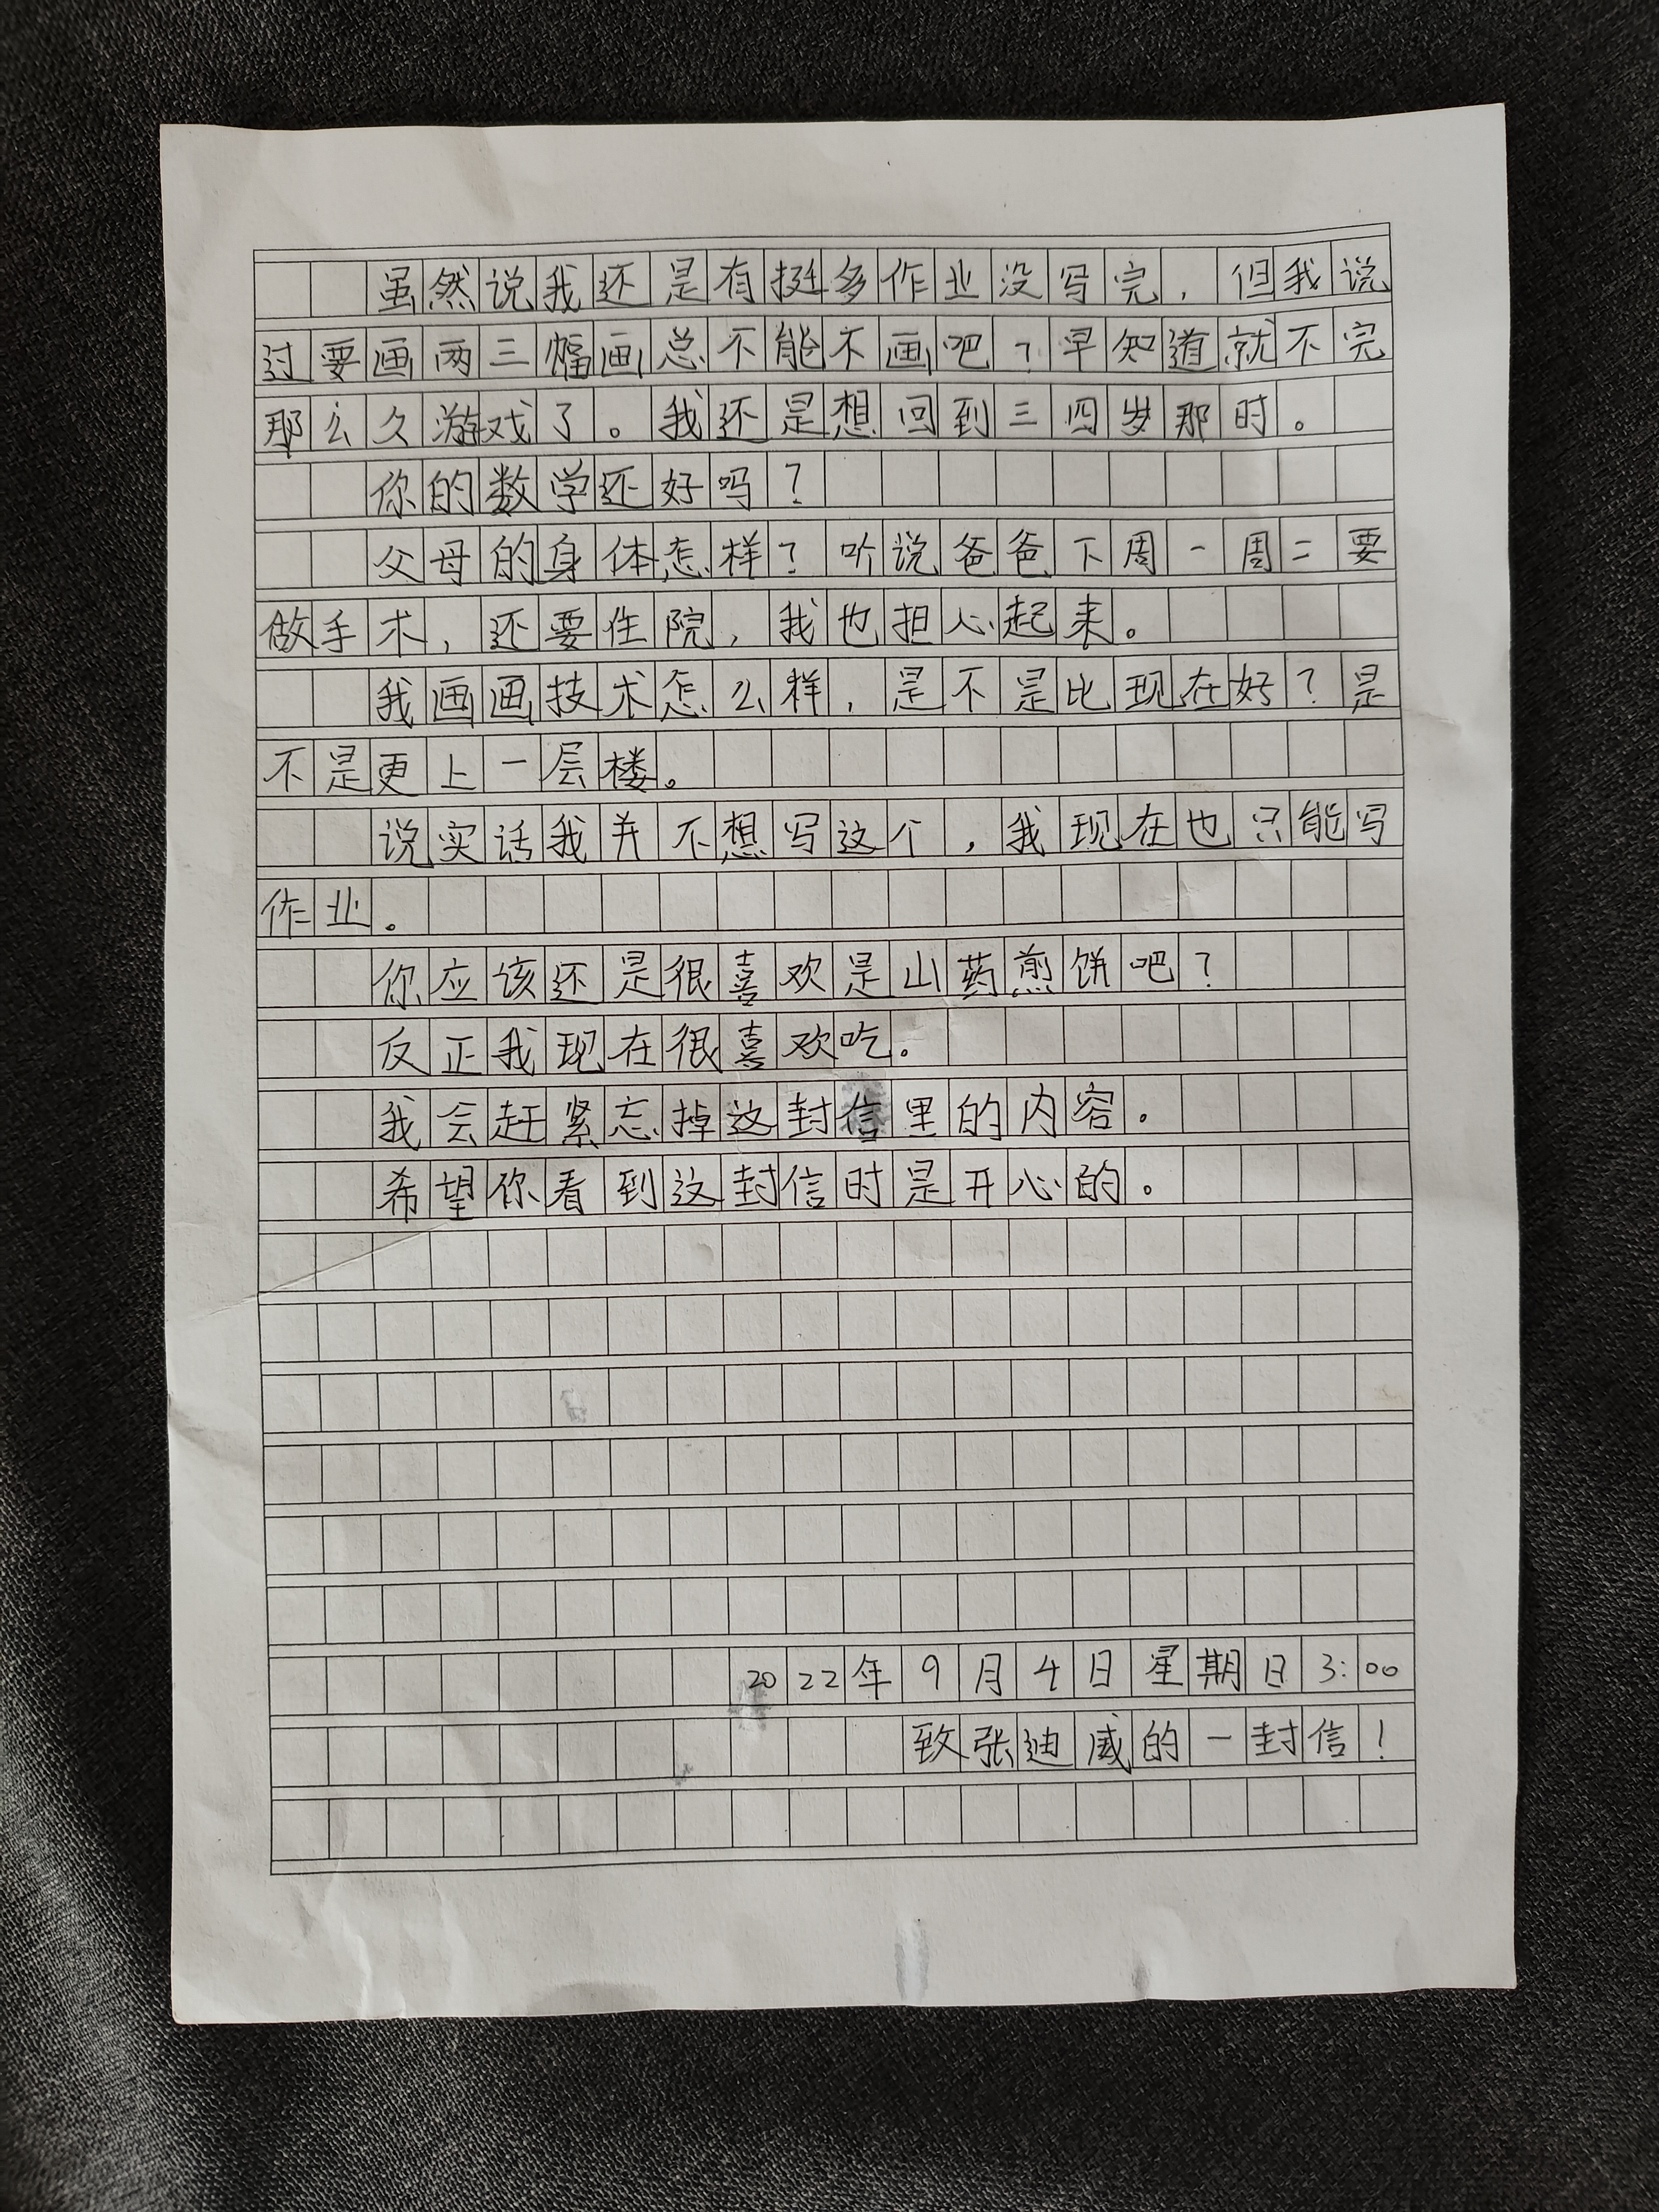 虽然说我还是有挺多作业没写完，但我说
过要画两三幅画总不能不画吧？早知道就不完
那么久游戏了。我还是想回到三四岁那时。
你的数学还好吗？
父母的身体怎样？听说爸爸下周一周二要
做手术，还要住院，我也担心起来。
我画画技术怎么样，是不是比现在好？是
不是更上一层楼。
说实话我并不想写这个，我现在也只能写
作业。
你应该还是很喜欢是山药煎饼吧？
反正我现在很喜欢吃。
我会赶紧忘掉这封信里的内容。
希望你看到这封信时是开心的。
2022年9月4日星期日3:00
致张迪威的一封信！